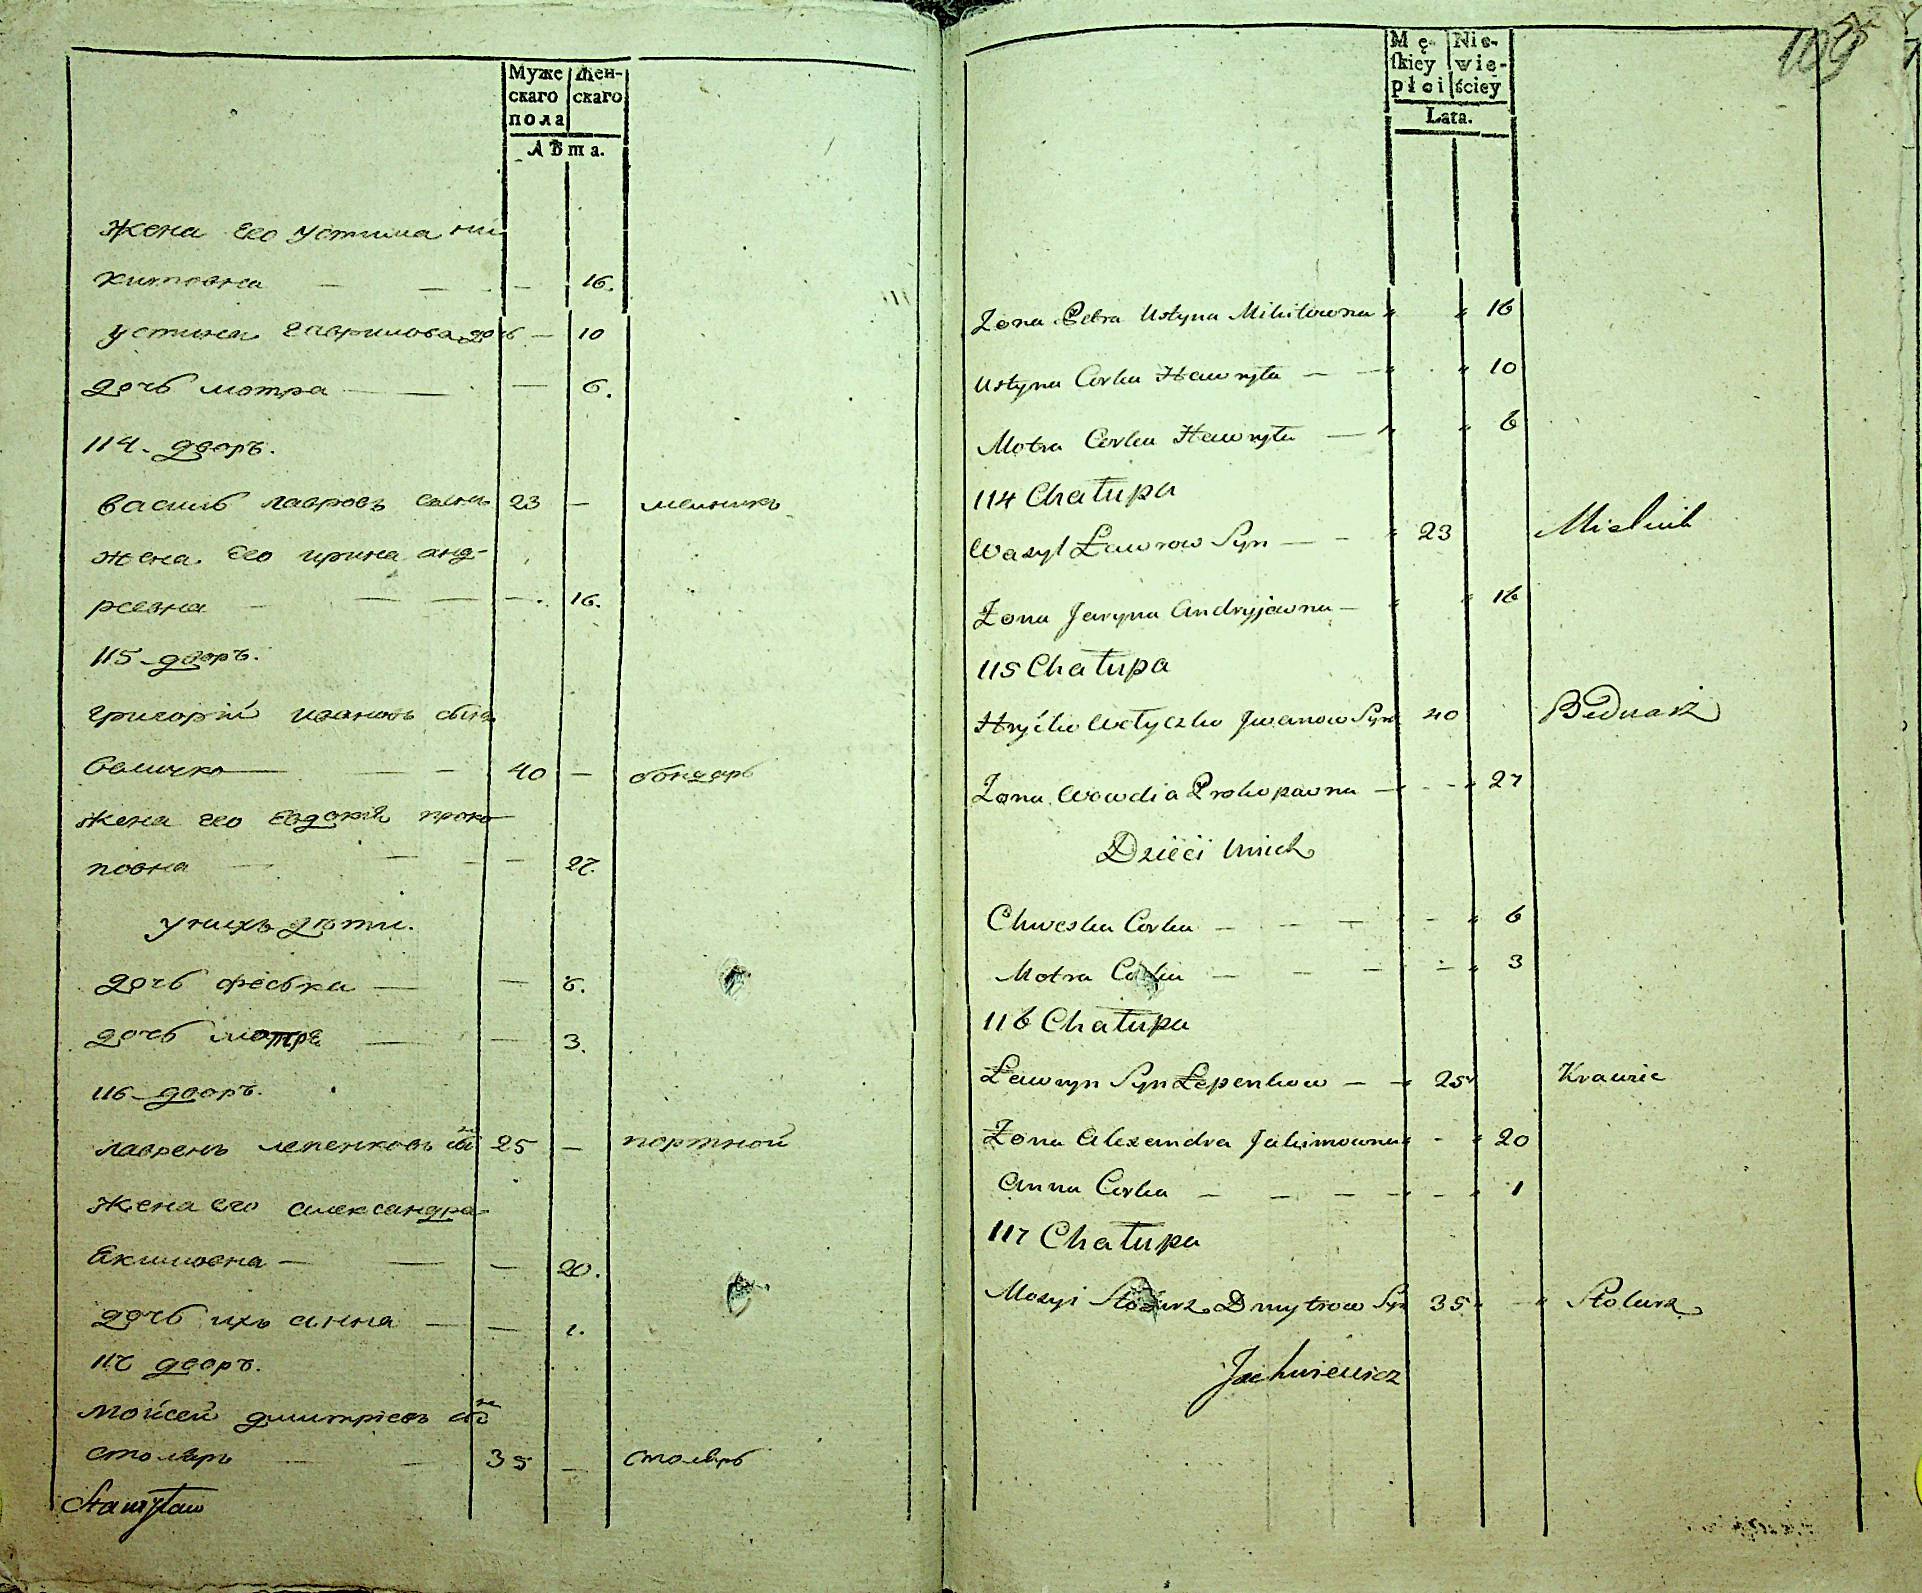 Муже Жен-
скаго скаго
пола
Лѣта.
жена его устина ни
китовна — — — 16.
устина гаврилова дочь — 10
дочь мотра — — — 6.
114. дворъ.
василь лавровъ сынъ 23 — мелникъ
жена его ирина анд-
реевна — — — — 16.
115 дворъ.
григорій ивановъ сынъ
величко — — — 40 — бондарь
жена его евдокія проко
повна — — — — 27.
у нихъ дѣти.
дочь феська — — 6.
дочь мотря — — 3.
116 дворъ.
лаврень лепенковъ сынъ 25 — портной
жена его александра
Екимовна — — — 20.
дочь ихъ анна — — 1.
117 дворъ.
Мойсей дмитріевъ сынъ
столяръ — — 35 — столяръ
Stanisław
109
Mę- Nie-
skiey wie-
płci ściey
Lata.
Żona Petra Ustyna Mikitowna " " 16
Ustyna Corka Hawryła — — " " 10
Motra Corka Hawryła — " " 6
114 Chałupa
Wasyl Ławrow Syn — — " 23 Mielnik
Żona Jaryna Andryjowna — " " 16
115 Chałupa
Hryćko Wełyczko Jwanow Syn 40 Bednarz
Żona Wowdia Prokopowna — — - " 27
Dzieci Unich
Chweska Corka — — — - - " 6
Motra Corka — — — - - " 3
116 Chałupa
Ławryn Syn Łepenkow — — 25 Krawiec
Żona Alexandra Jakimowna " - " 20
Anna Corka — — — — - " 1
117 Chałupa
Mosyi Stolarz Dmytrow Syn 35 " — " Stolarz
Jachniewicz